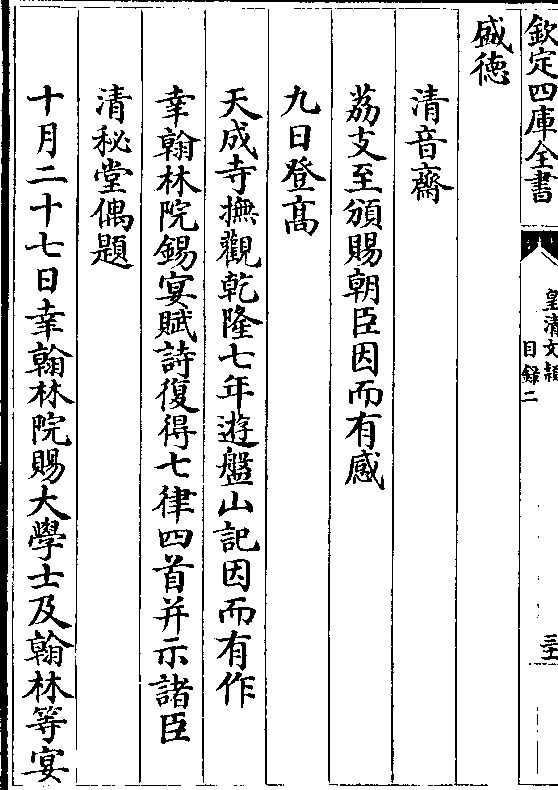 欽定四庫全書
皇清文穎
目録二
三十
盛德
清音齋
荔支至頒賜朝臣因而有感
九日登髙
天成寺撫觀乾隆七年遊盤山記因而有作
幸翰林院錫宴賦詩復得七律四首并示諸臣
清秘堂偶題
十月二十七日幸翰林院賜大學士及翰林等宴